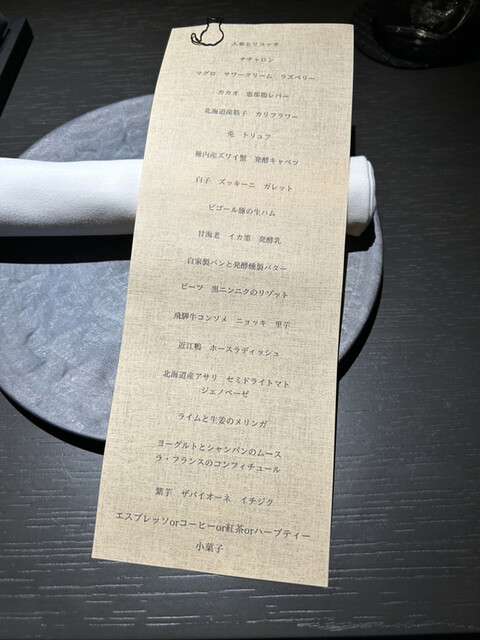 人参とリコッタ
チチャロン
マグロ　サワークリーム　ラズベリー
カカオ　恵那鶏レバー
北海道産筋子　カリフラワー
兎　トリュフ
稚内産ズワイ蟹　発酵キャベツ
白子　ズッキーニ　ガレット
ビゴール豚の生ハム
甘海老　イカ墨　発酵乳
自家製パンと発酵燻製バター
ビーツ　黒ニンニクのリゾット
飛騨牛コンソメ　ニョッキ　里芋
近江鴨　ホースラディッシュ
北海道産アサリ　セミドライトマト
ジェノベーゼ
ライムと生姜のメリンガ
ヨーグルトとシャンパンのムース
ラ・フランスのコンフィチュール
紫芋　ザバイオーネ　イチジク
エスプレッソorコーヒーor紅茶orハーブティー
小菓子